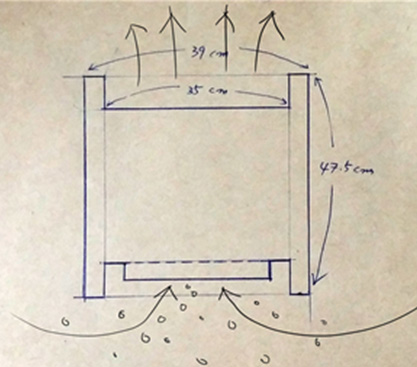 39 cm
35 cm
47.5cm